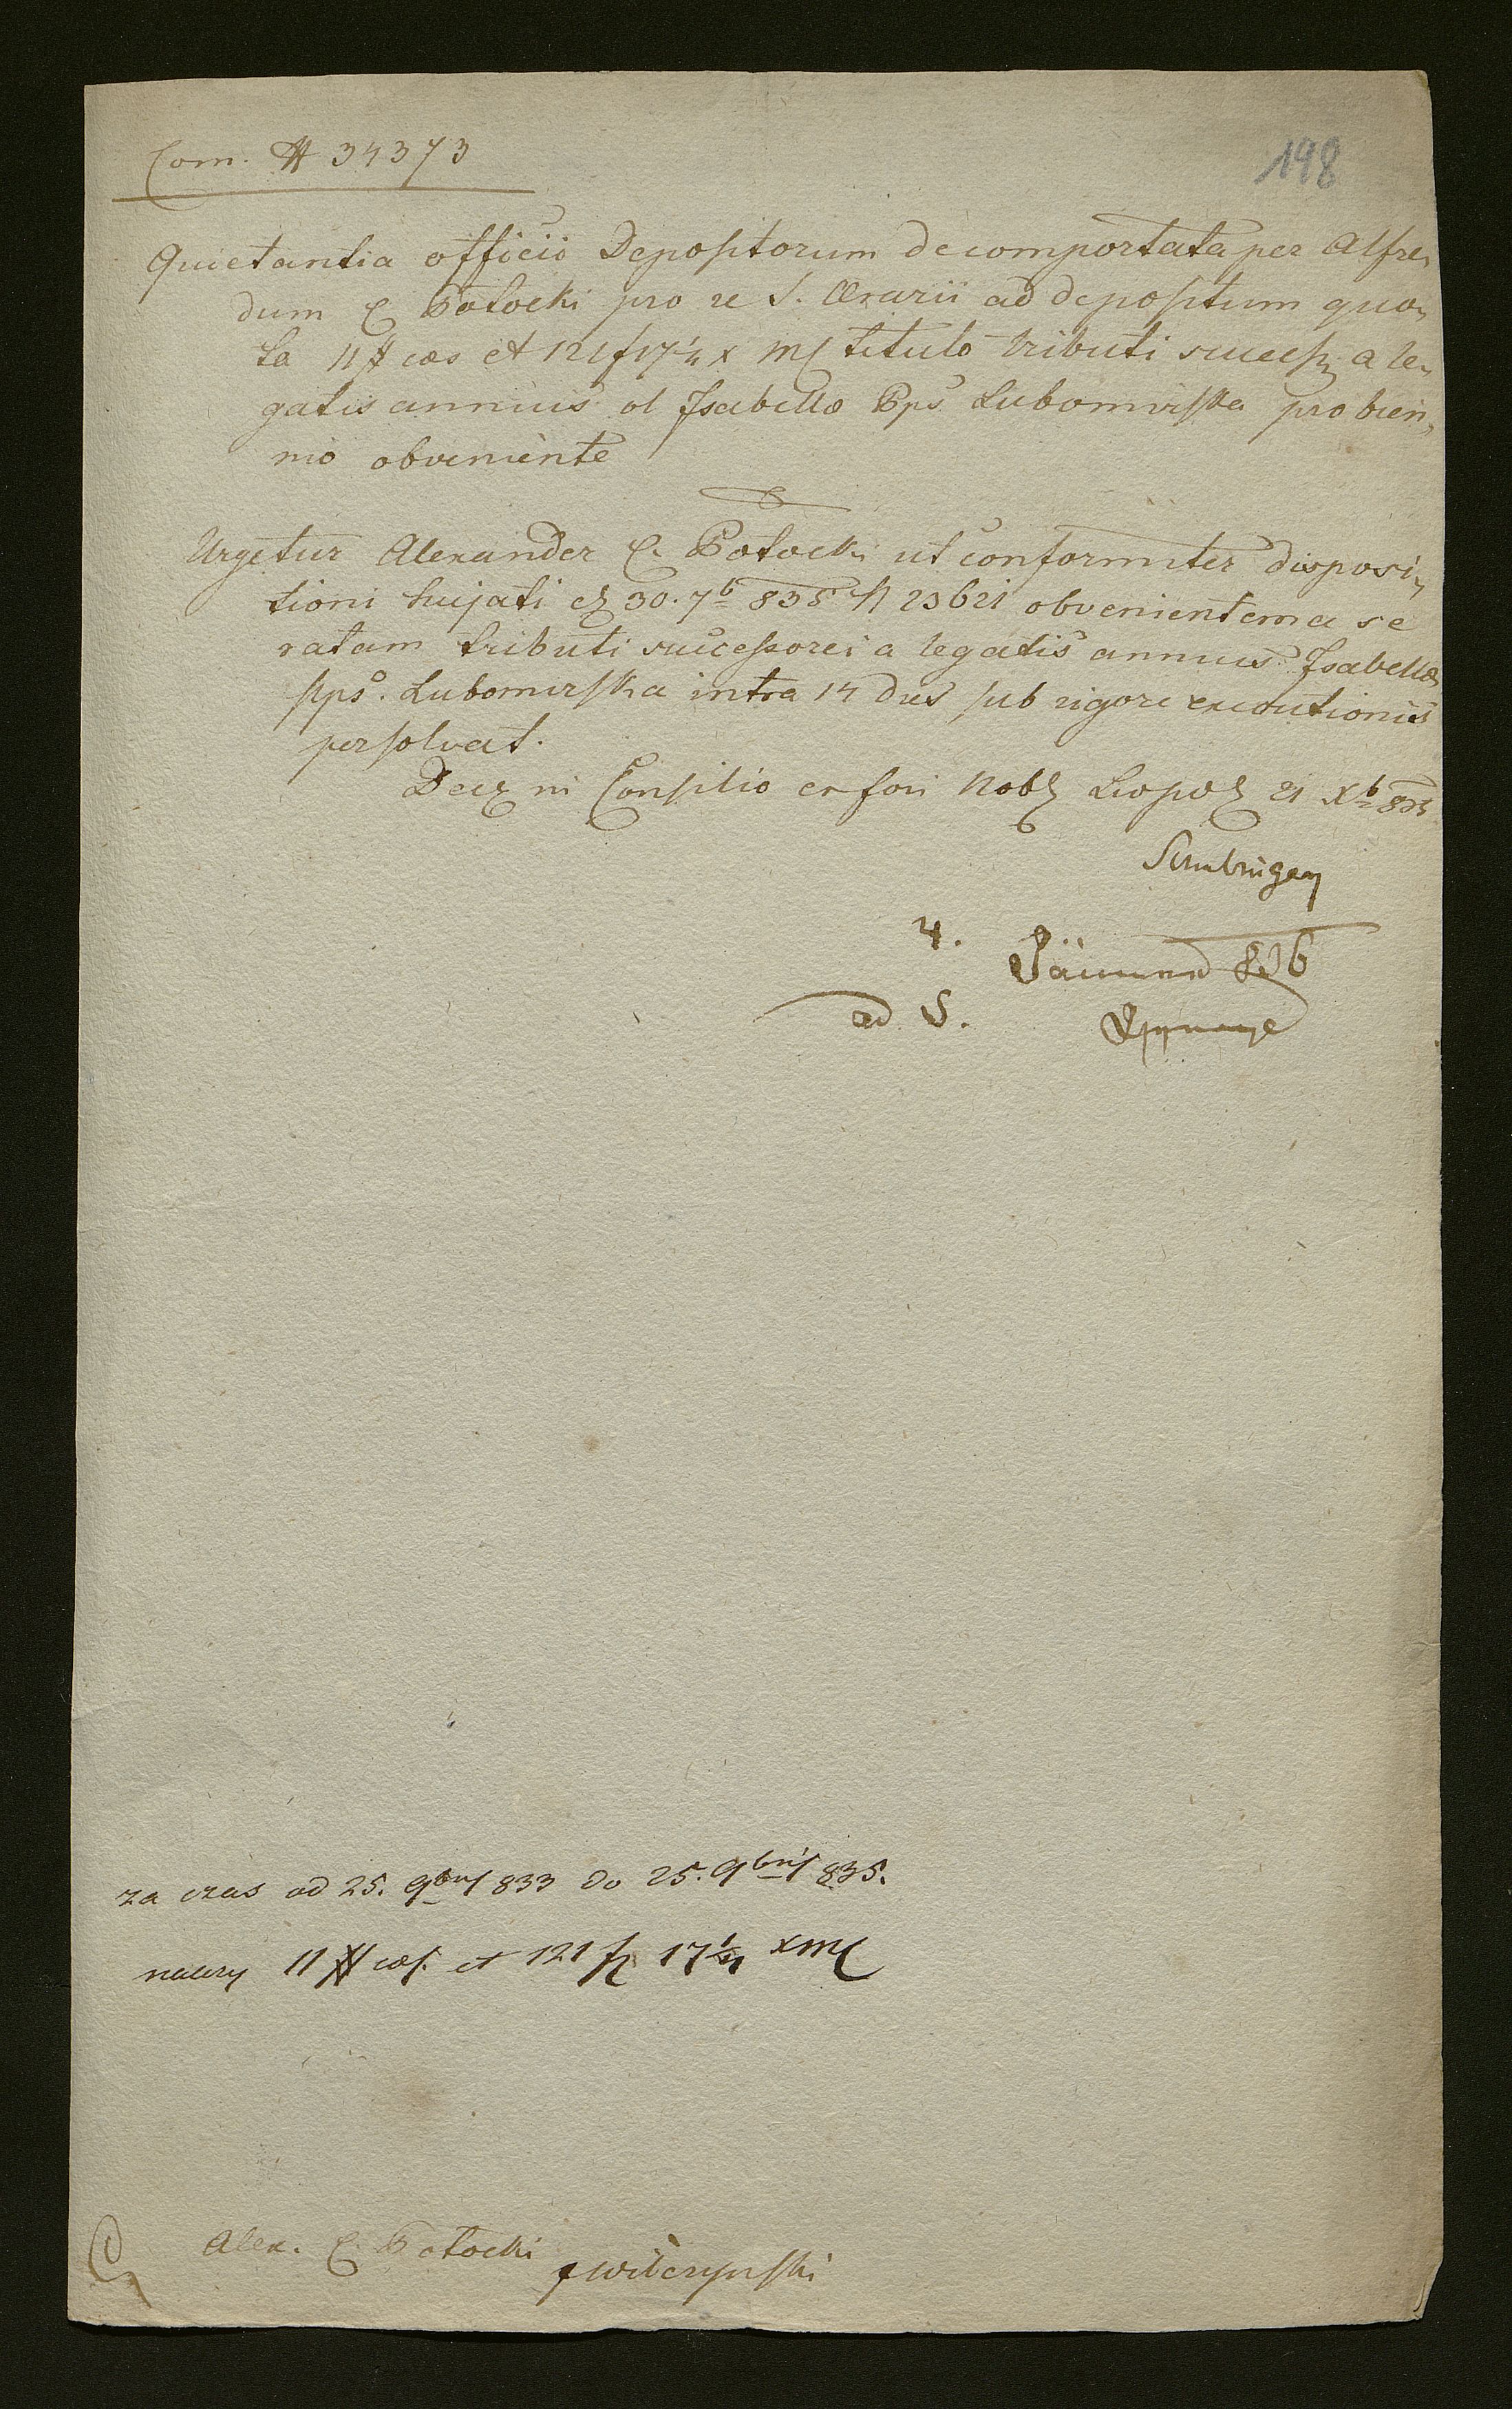 Com. # 34373
198
Quietantia officii Depositorum de comportata per Alfre„
dum C Potocki pro re S. Ærarii ad depositum quo„
ta 11 # cæs et 121 f 17 1/4 x M C titulo tributi success a le„
gatis annuis ol Isabellæ Pps Lubomirska pro bien„
nio obveniente
Urgetur Alexander C. Potocki ut conformiter disposi„
tioni hujati 30. 7b 835 N 23621 obvenientem a se
ratam tributi successorei a legatis annuis Isabellæ
Pps. Lubomirska intra 14 dies sub rigore executionis
persolvat.
Consilio Fori Nob Leopol 21 Xb 835
4. 836
ad 5.
za czas od 25. 9bris 833 do 25. 9bris 835.
11 # cæs. et 121 f 17 1/4 x M C
Alex. C. Potocki
Wilczynski